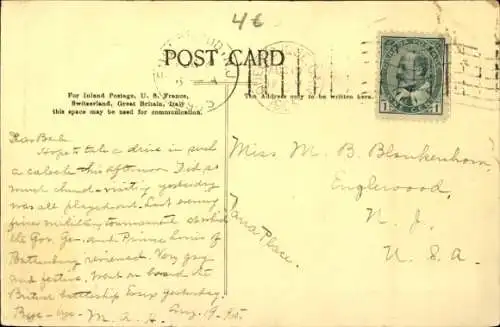 4€
POST CARD
For Inland Postage, U. S. France,
Switzerland, Great Britain, Italy
this space may be used for communication.
The Address only to be written here.
CANADA POSTAGE
1 1
Hope to take a drive in such
a caleche this afternoon. Did so
much church-visiting yesterday
was all played out. Last evening
fine military tournament at which
the Gov. Gen. and Prince Louis of
Battenburg reviewed. Very gay
and festive. Went on board the
British battleship Essex yesterday.
Bye-bye- M. A. H. Aug. 19 '05.
Miss M. B. Blankenhorn,
Englewood,
N. J.
U. S. A.
Tana Place.